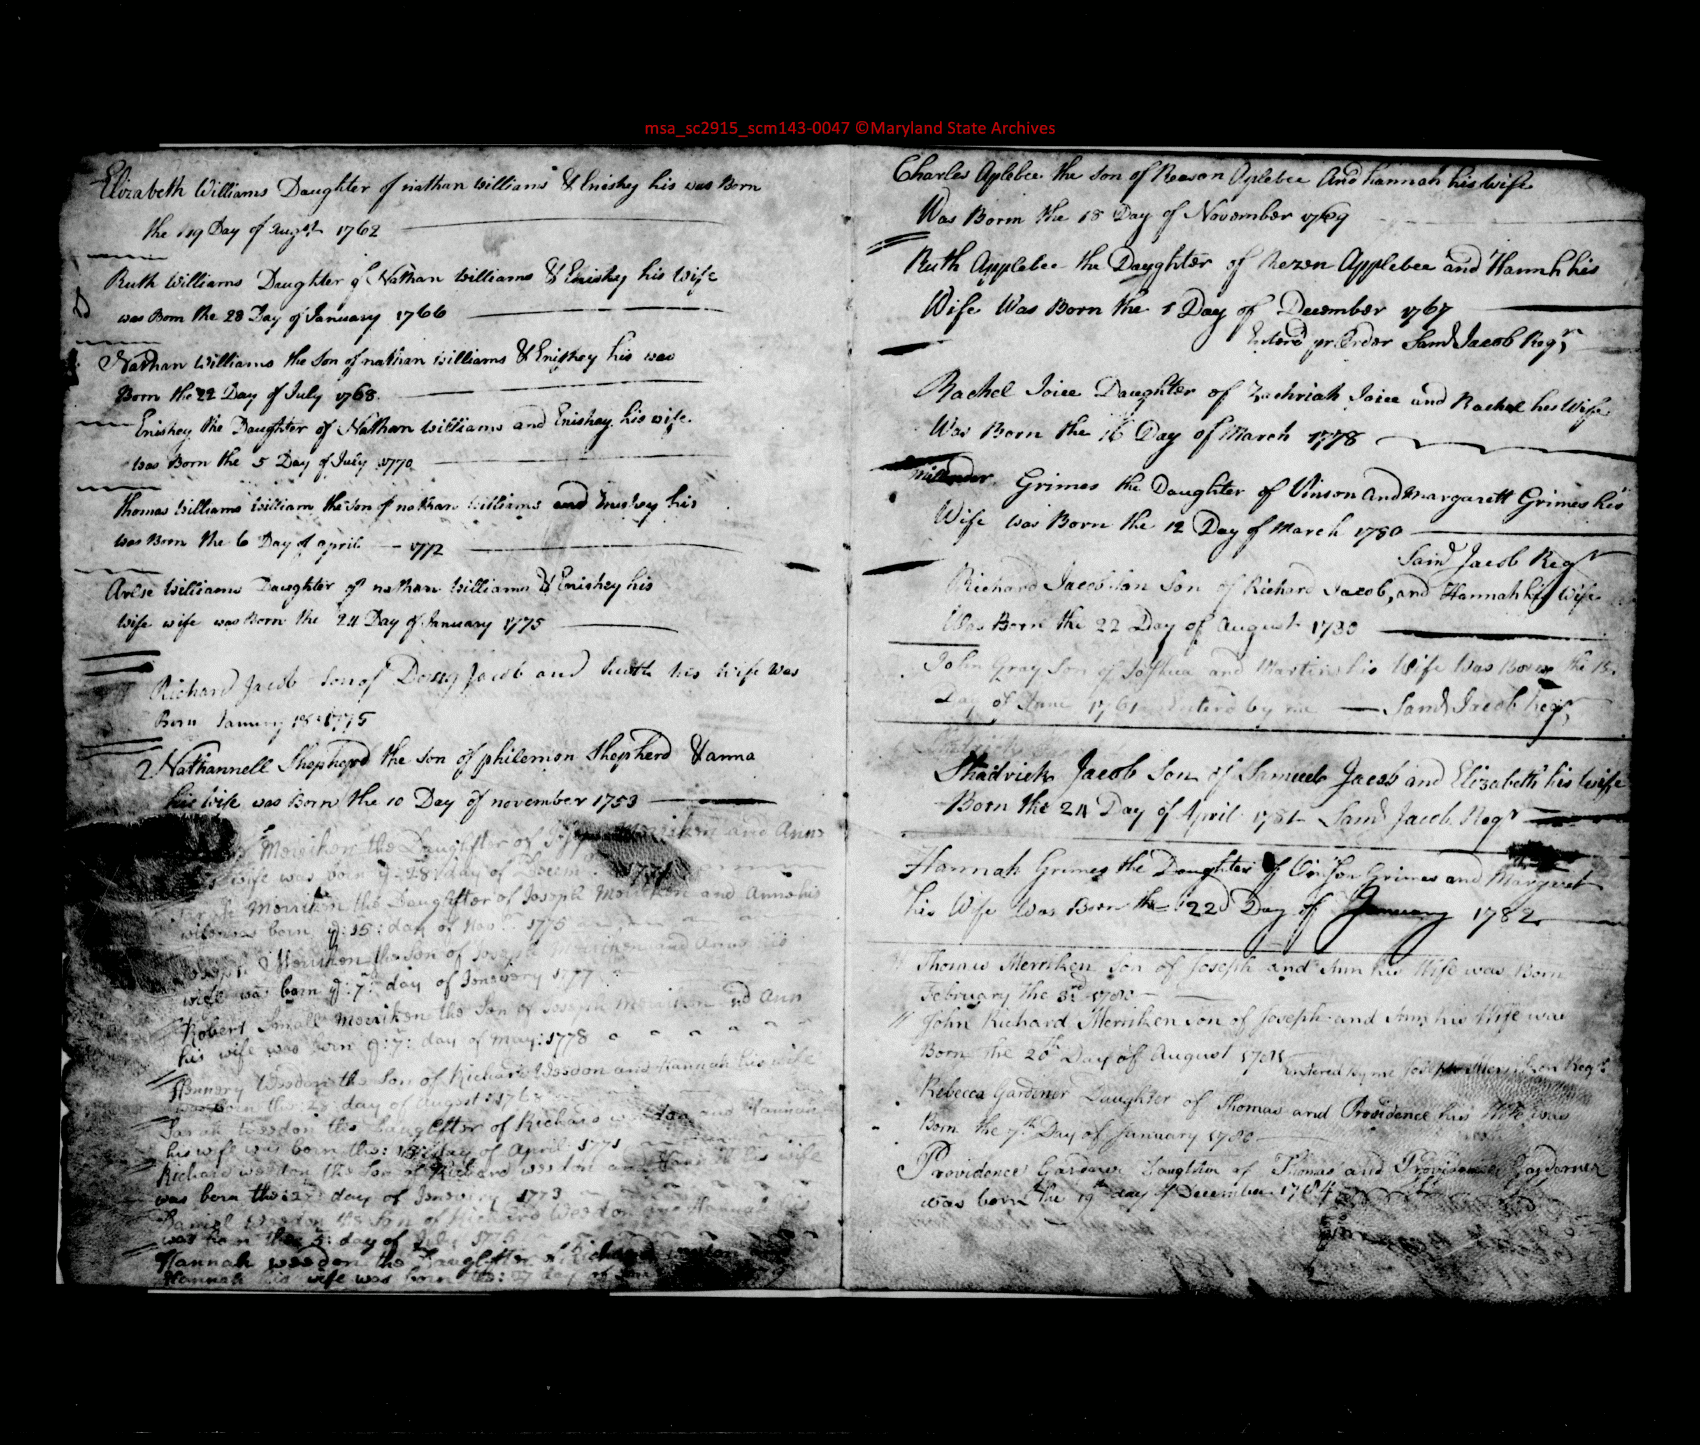 msa_sc2915_scm143-0047 ©Maryland State Archives
Elizabeth Williams Daughter of nathan williams & Eniskey his was Born
the 19 Day of Augst 1762
Ruth Williams Daughter of Nathan williams & Eniskey his Wife
was Born the 28 Day of January 1766
Nathan williams the Son of nathan williams & Eniskey his was
Born the 22 Day of July 1768
Eniskey the Daughter of Nathan williams and Eniskey his wife
was Born the 5 Day of July 1770
Thomas Williams William the Son of nathan williams and Eniskey his
was Born the 6 Day of april 1772
Williams Daughter of nathan Williams & Eniskey his
Wife wife was Born the 24 Day of January 1775
Richard Jacob Son of Jacob and his Wife was
Born January 1775
2 Nathannell Shepherd the Son of philemon Shepherd & anna
his wife was Born the 10 Day of november 1753
Merriken the Daughter of Merriken and Ann
wife was born ye: 28: day of
Merriken the Daughter of Joseph Merriken and Ann his
wife was born ye: 15: day of Novr 1775
Joseph Merriken the Son of Joseph Merriken and Ann his
wife was born ye: 7: day of Jenewery 1777
Robert Small Merriken the Son of Joseph Merriken and Ann
his wife was born ye: 7: day of May: 1778
Weedon the Son of Richard Weedon and Hannah his wife
was born the: day of August: 176
Sarah Weedon the Daughter of Richard weedon and Hannah
his wife was born the: day of April 1771
Richard weedon the Son of Richard weedon and his wife
was born the: 2 day of Jenewery 1773
Daniel Weedon the Son of Richard Weedon and Hannah his
was born the: 5: day of July 177
Hannah weedon the Daughter of Richard weedon
Hannah his wife was born the: 27 day of
Charles Aplebee the son of Reason Aplebee And hannah his wife
Was Born the 18 Day of November 1769
Ruth Applebee the Dayghter of Rezen Applebee and Hannh his
Wife Was Born the 1 Day of December 1767
Enterd pr Order Saml Jacob Regr
Rachel Joice Daughter of Zachriah Joice and Rachel his Wife
Was Born the 16 Day of March 1778
Grimes the Daughter of Vinson And margarett Grimes his
Wife was Born the 12 Day of March 1780
Saml Jacob Regr
Richard Jacob Son of Richard Jacob, and Hannah his Wife
Was Born the 22 Day of August
John Gray Son of Joshua and his Wife Was Born the 15
Day of June 1761 Enterd by me Saml Jacob Regr
Shadrick Jacob Son of Samuel Jacob and Elizabeth his wife
Born the 24 Day of April 1781 Saml Jacob Regr
Hannah Grimes the Daughter of Grimes and Margaret
his Wife Was Born the 22d Day of January 1782
Thomas Merriken Son of Joseph and Ann his Wife was Born
February the 3rd 1780
John Richard Merriken Son of Joseph and Ann his Wife was
Born the 20th Day of August Entered by me Joseph Merriken Regr
Rebecca Gardener Daughter of Thomas and Providence his Wife was
Born the 7th Day of January 1780
Providence Gardner Daughter of Thomas and Providence
was born the 19th day of December 1784